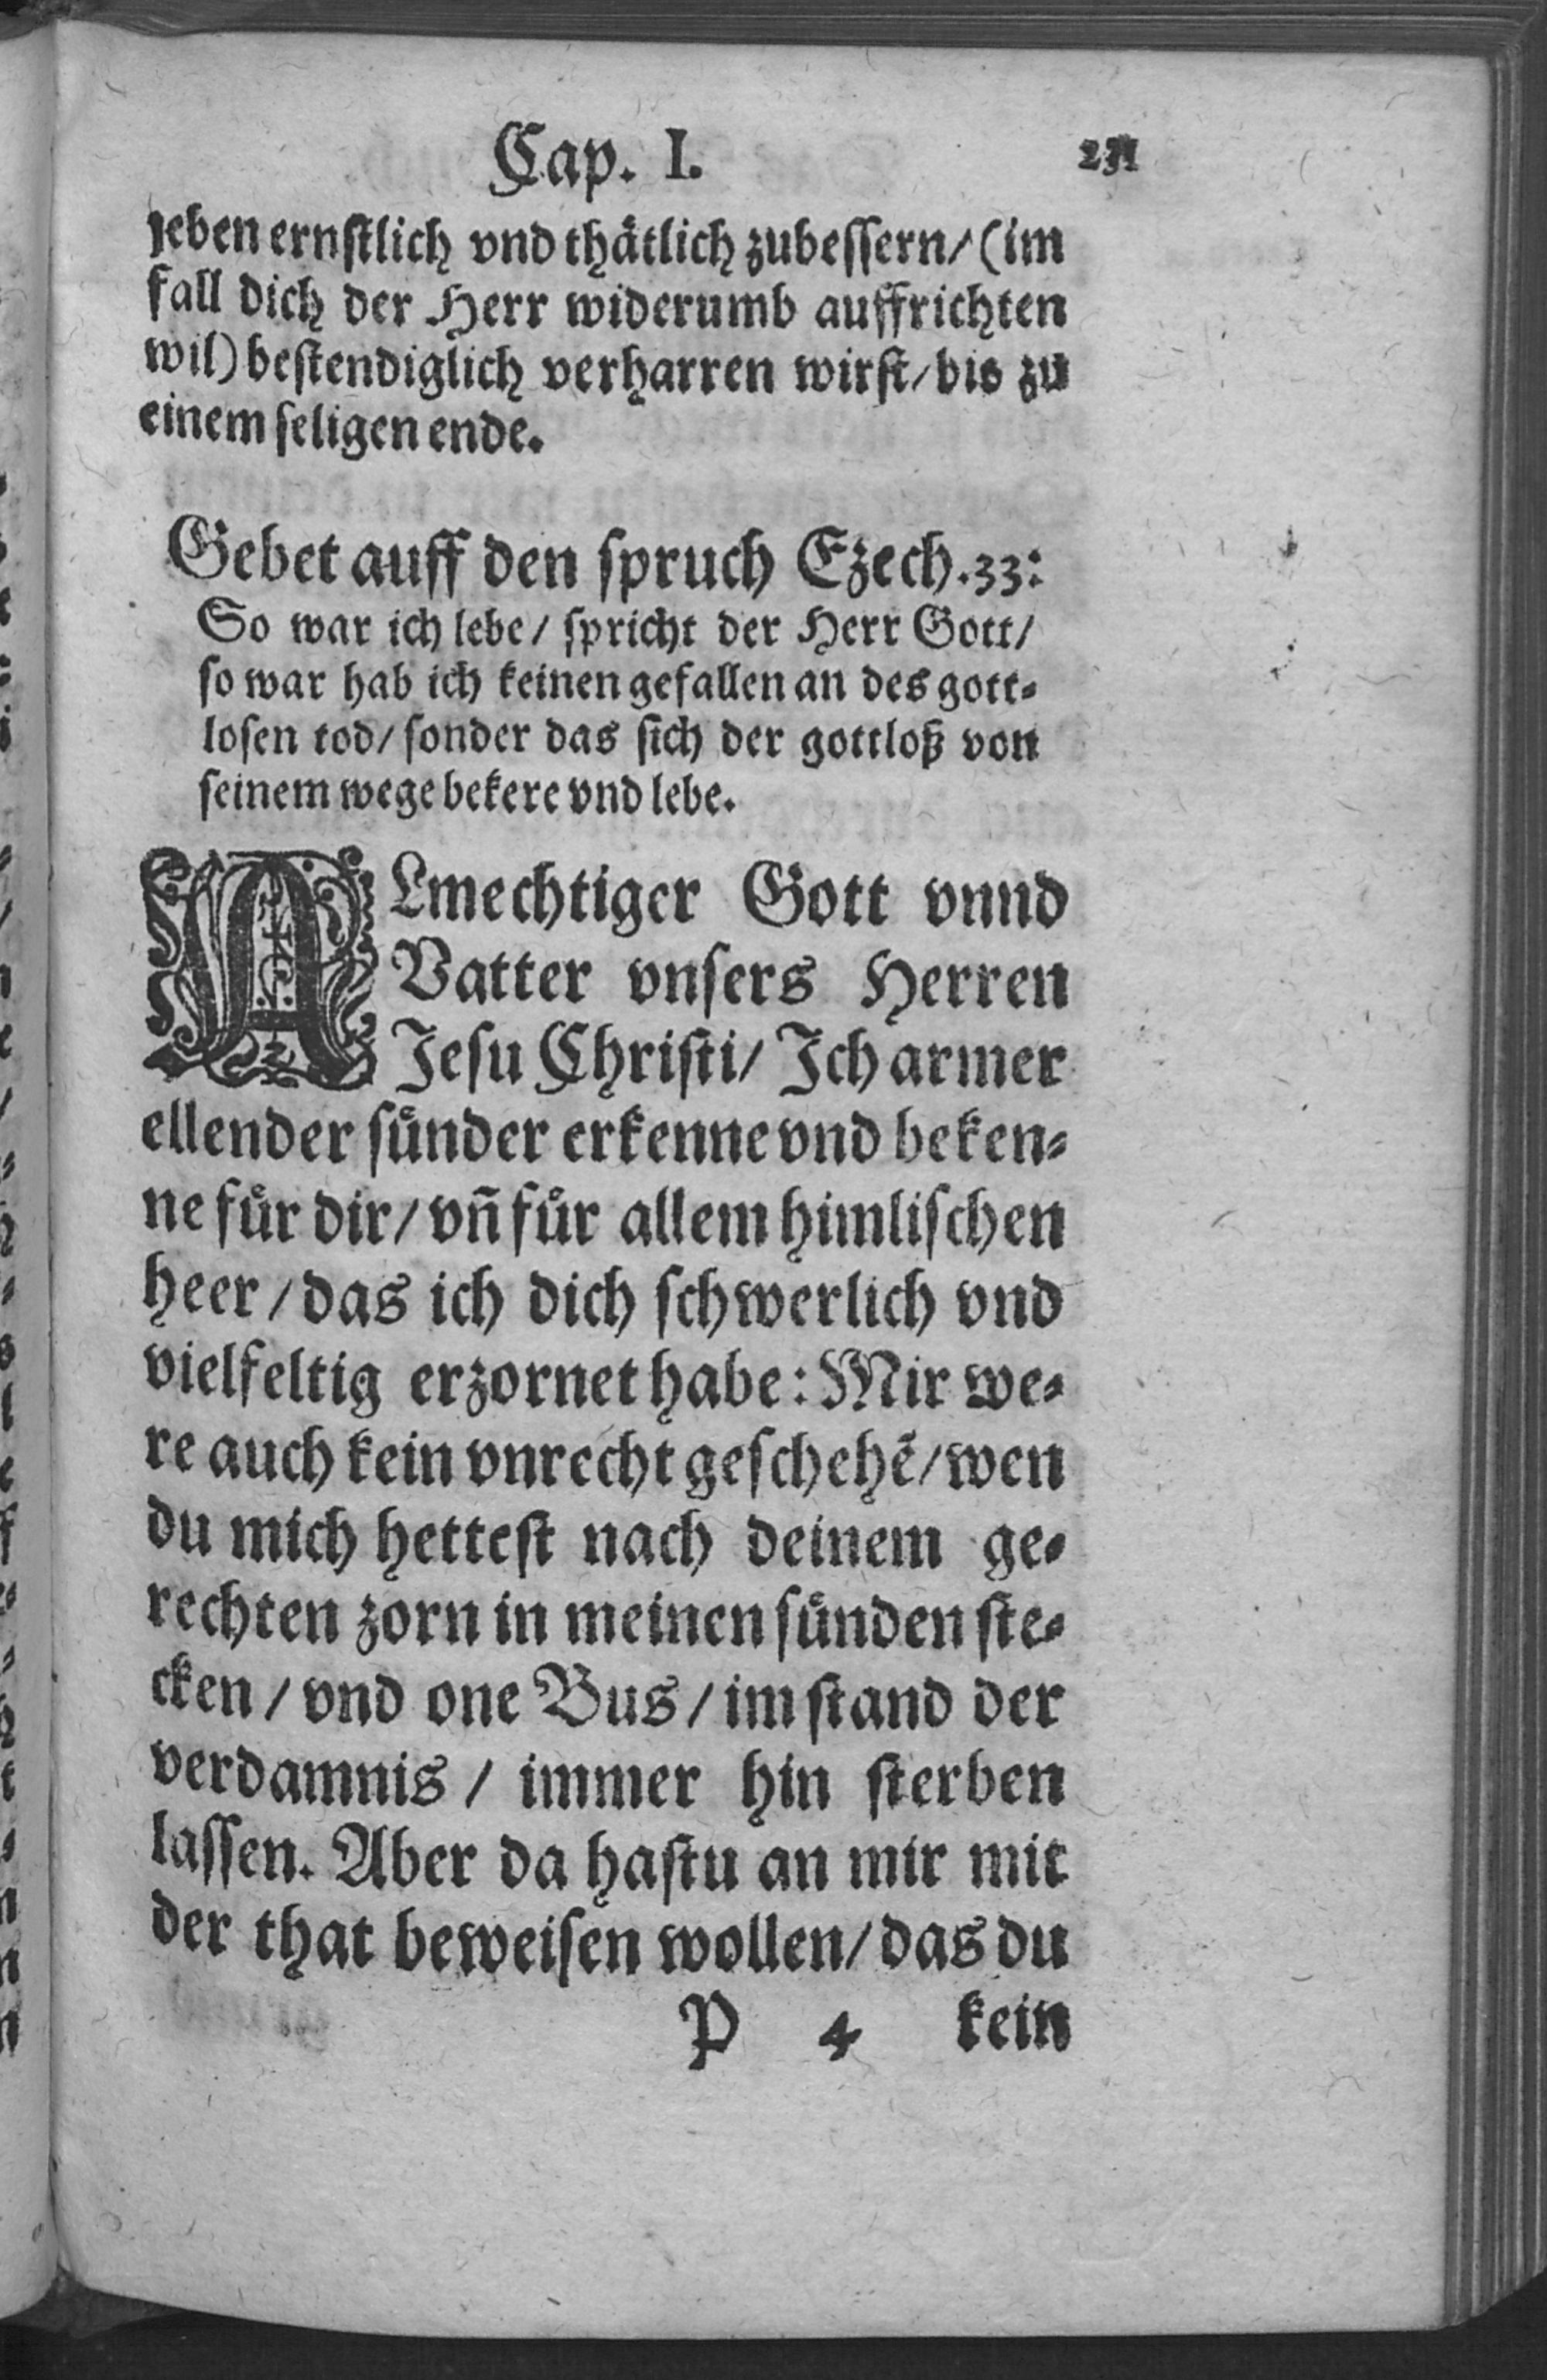 Cap. I. 231
leben ernstlich vnd thaͤtlich zubessern/ (im
fall dich der Herr widerumb auffrichten
wil) bestendiglich verharren wirst/ bis zu
einem seligen ende.
Gebet auff den spruch Ezech. 33:
So war ich lebe/ spricht der Herr Gott/
so war hab ich keinen gefallen an des gott⸗
losen tod/ sonder das sich der gottloß von
seinem wege bekere vnd lebe.
ALmechtiger Gott vnnd
Vatter vnsers Herren
Jesu Christi/ Ich armer
ellender suͤnder erkenne vnd beken⸗
ne fuͤr dir/ vñ fuͤr allem himlischen
heer/ das ich dich schwerlich vnd
vielfeltig erzornet habe: Mir we⸗
re auch kein vnrecht geschehẽ/ wen
du mich hettest nach deinem ge⸗
rechten zorn in meinen suͤnden ste⸗
cken/ vnd one Bus/ im stand der
verdamnis/ immer hin sterben
lassen. Aber da hastu an mir mit
der that beweisen wollen/ das du
P 4 kein